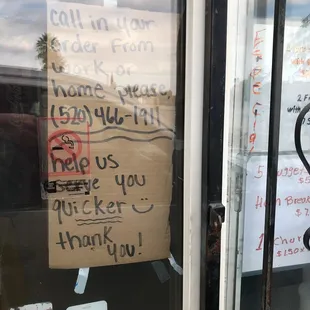 call in your
order from
work, or
home please,
(520)466-1911
help us
serve you
quicker
thank
you!
2 F
with
5 nugget
$5
Ham Break
$7
1 Char
$1.50